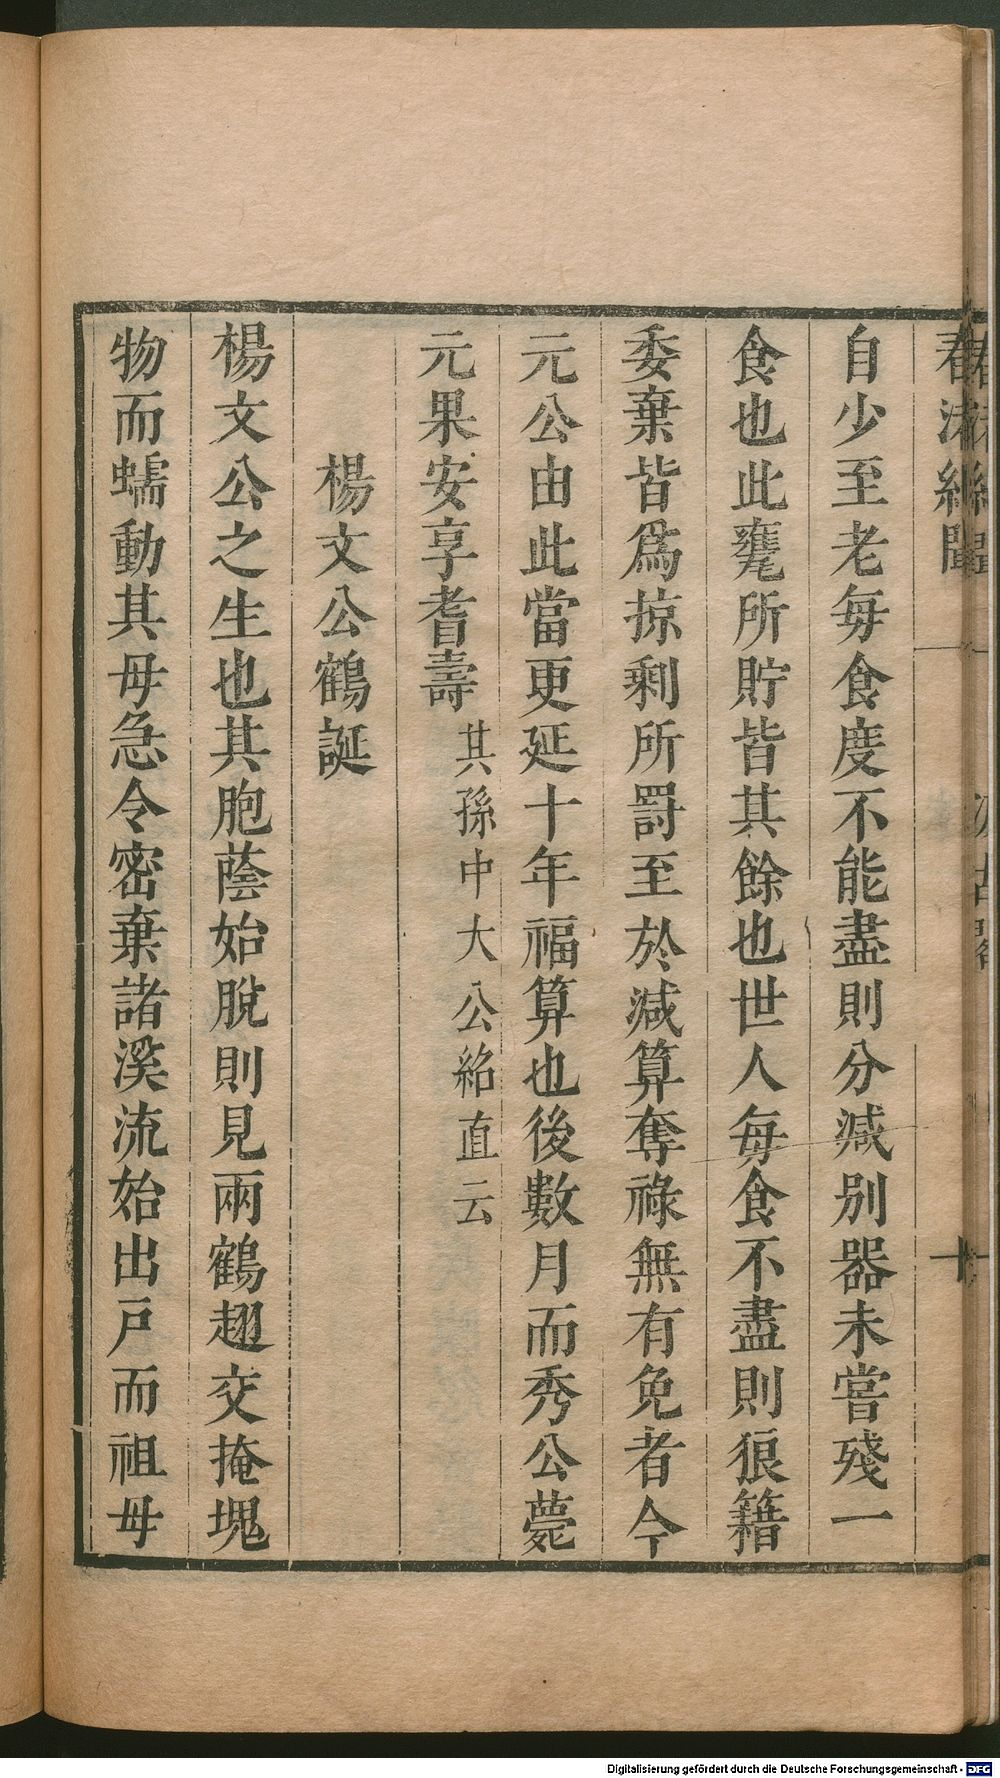 春渚紀聞
十
自少至老每食度不能盡則分減别器未嘗殘一
食也此甕所貯皆其餘也世人每食不盡則狼籍
委棄皆爲掠剩所罰至於減算奪祿無有免者今
元公由此當更延十年福算也後數月而秀公薨
元果安享耆壽其孫中大公紹直云
楊文公鶴誕
楊文公之生也其胞蔭始脫則見兩鶴翅交掩塊
物而蠕動其母急令密棄諸溪流始出戸而祖母
Digitalisierung gefördert durch die Deutsche Forschungsgemeinschaft - DFG